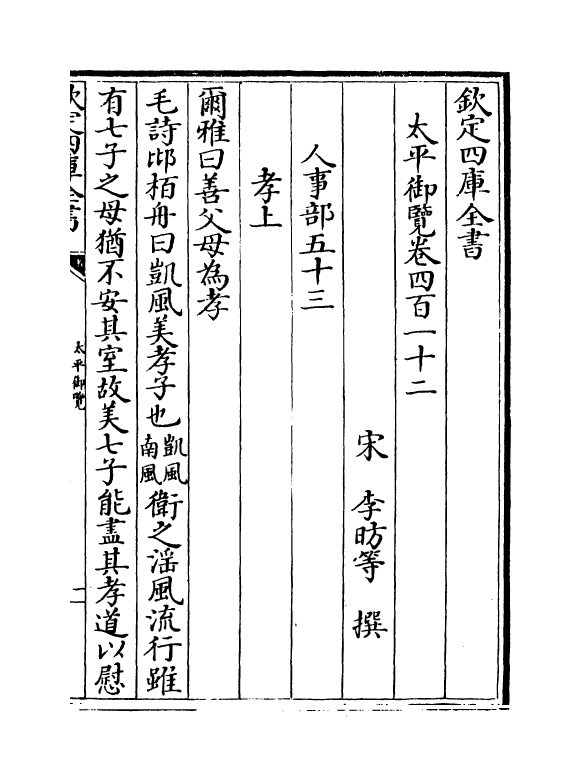 欽定四庫全書
太平御覽卷四百一十二
宋 李昉等 撰
人事部五十三
孝上
爾雅曰善父母為孝
毛詩邶栢舟曰凱風美孝子也凱風南風衛之淫風流行雖
有七子之母猶不安其室故美七子能盡其孝道以慰
欽定四庫全書
太平御覽
一